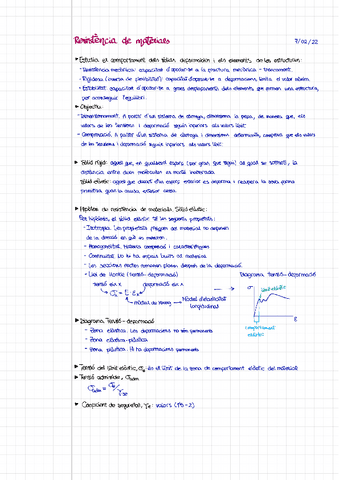 Resistència de materials
7/02/22
▸ Estudia el comportament dels sòlids deformables i els elements de les estructures:
- Resistència mecànica: capacitat d'oposar-se a la fractura mecànica - trencament.
- Rigidesa (inversa de flexibilitat): capacitat d'oposar-se a deformacions
- Estabilitat: capacitat d'oposar-se a grans desplaçaments dels elements que formen una estructura,
per aconseguir l'equilibri.
▸ Objectiu:
- Dimensionament. A partir d'un sistema de càrregues, dimensionar la peça, de manera que, els
valors de les tensions i deformació siguin inferiors als valors límit.
- Comprovació. A partir d'un sistema de càrregues i dimensions determinats, comprova que els valors
de les tensions i deformació siguin inferiors als valors límit.
▸ Sòlid rígid: aquell que, en qualsevol esforç (per gran que sigui) al qual se sotmeti, la
distància entre dues molècules es manté inalterada.
Sòlid elàstic: aquell que davant d'un esforç exterior es deforma i recupera la seva forma
primitiva quan la causa exterior cessa.
▸ Hipòtesi de resistència de materials. Sòlid elàstic:
Per hipòtesi, el sòlid elàstic té les següents propietats:
- Isotropia. Les propietats físiques del material no depenen
de la direcció en què es mesuren.
- Homogeneïtat. Mateixa composició i característiques
- Continuïtat. No hi ha espais buits al material
- Les seccions rectes romanen planes després de la deformació.
- Llei de Hooke (tensió-deformació)
Diagrama tensió-deformació
tensió en x
deformació en x
σx = E · εx
Mòdul de Young
Mòdul d'elasticitat
longitudinal
σ
límit elàstic
ε
comportament
elàstic
▸ Diagrama Tensió-deformació
- Zona elàstica. Les deformacions no són permanents
- Zona elàstica-plàstica
- Zona plàstica. Hi ha deformacions permanents
▸ Tensió del límit elàstic, σe: és el límit de la zona de comportament elàstic del material
▸ Tensió admissible, σadm
σadm = σe/γse
▸ Coeficient de seguretat, γs: valors (1'5-2)